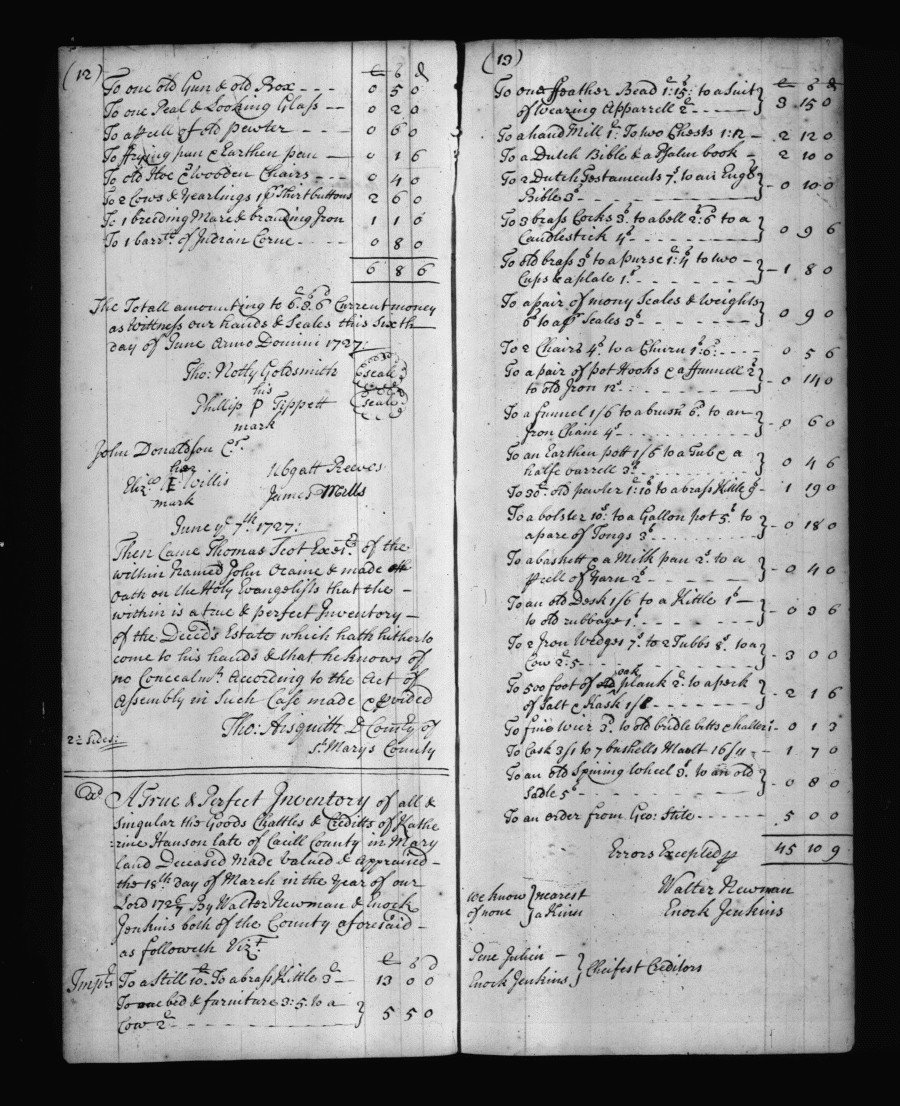 (12)
£ s d
To one old Gun & old Box - - - 0 5 0
To one Peal & Looking Glass -- 0 2 0
To a pcell of old pewter - - - - 0 6 0
To frying pan & Earthen pan — 0 1 6
To old Hoe & Wooden Chairs - - - 0 4 0
To 2 Cows & Yearlings 1 pr Shirt buttons 2 6 0
To 1 breeding Mare & branding Iron 1 1 6
To 1 barrll of Indian Corne - - - - 0 8 0
6 8 6
The Totall amounting to 6£. 8s. 6d Current money
as Wittness our hands & Seales this Sixth
day of June Anno Domini 1727:
Tho: Notly Goldsmith seale
his
Phillip P Tippett seale
mark
John Donaldson Cr.
her
Elizа E Willis Ubgatt Reeves
mark James Mills
June ye 7th. 1727:
Then Came Thomas Scot Exec of the
within Named John & made
Oath on the Holy Evangelists that the -
within is a true & perfect Inventory -
of the Deceds Estate which hath hitherto
come to his hands & that he knows of
no Concealmt. According to the Act of
Assembly in Such Case made & pvided
Tho: Aisquith D County of
2 Sides: St. Marys County
Exd A True & Perfect Inventory of all &
Singular the Goods Chattles & Creditts of Kathe
:rine Hanson late of Cecill County in Mary
land Deceased Made Valued & Appraised -
the 18th. Day of March in the Year of our
Lord 1726/7 By Walter Newman & Enock
Jenkins both of the County aforesaid -
as followeth Vizt.
£ s d
Impes To a Still 10£. To a brass Kittle 3£ — 13 0 0
To one bed & furniture 3:5. to a
Cow 2£ - - - - } 5 5 0
(13)
£ s d
To one ffeather Bead 1:15: to a Suit
of Wearing Apparrell 2£ - - - - } 3 15 0
To a hand Mill 1£: To two Chests 1:12 - 2 12 0
To a Dutch Bible & a Psalm book - 2 10 0
To 2 Dutch Testaments 7s. to an Engs
Bible 3s - - - - } 0 10 0
To 3 brass Cocks 3s. to a bell 2s:6d to a
Candlestick 4s - - - - } 0 9 6
To old brass 3s to a purse 1:4 to two -
Cups & a plate 1s. - - - - } 1 8 0
To a pair of mony Scales & Weights
6s to a pr Scales 3s - - - - } 0 9 0
To 2 Chairs 4s. to a Churn 1s:6d: - - - - 0 5 6
To a pair of pot Hooks & a ffunnell 2s
to old Iron 12s. - - - - } 0 14 0
To a funnel 1/6 to a brush 6d. to an
Iron Chain 4s - - - - } 0 6 0
To an Earthen pott 1/6 to a Tub & a
halfe barrell 3s. - - - - } 0 4 6
To 30lb. old pewter 1£:10s to a brass Kittle 9s - 1 19 0
To a bolster 10s: to a Gallon pot 5s. to
a pare of Tongs 3s - - - - } 0 18 0
To a baskett & a Milk pan 2s. to a
pcell of Yarn 2s - - - - } 0 4 0
To an old Desk 1/6 to a Kittle 1s -
to old rubbage 1s. - - - - } 0 3 6
To 2 Iron Wedges 7s. to 2 Tubbs 8s. to a
Cow 2£:5 - - - - } 3 0 0
To 500 foot of oak plank 2£. to a peck
of Salt & Kask 1/6 - - - - } 2 1 6
To fine Wier 3d. to old bridle bitts & halter 1s - 0 1 3
To Cask 3/1 to 7 bushells Mault 16/11 - - 1 7 0
To an old Spining Wheel 3s. to an old
Sadle 5s - - - - } 0 8 0
To an order from Geo: Stite - - - - - 5 0 0
Errors Excepted p 45 10 9
we know } nearest Walter Newman
of none } a Kinn Enock Jenkins
Pene Julien -
Enock Jenkins } Cheifest Creditors